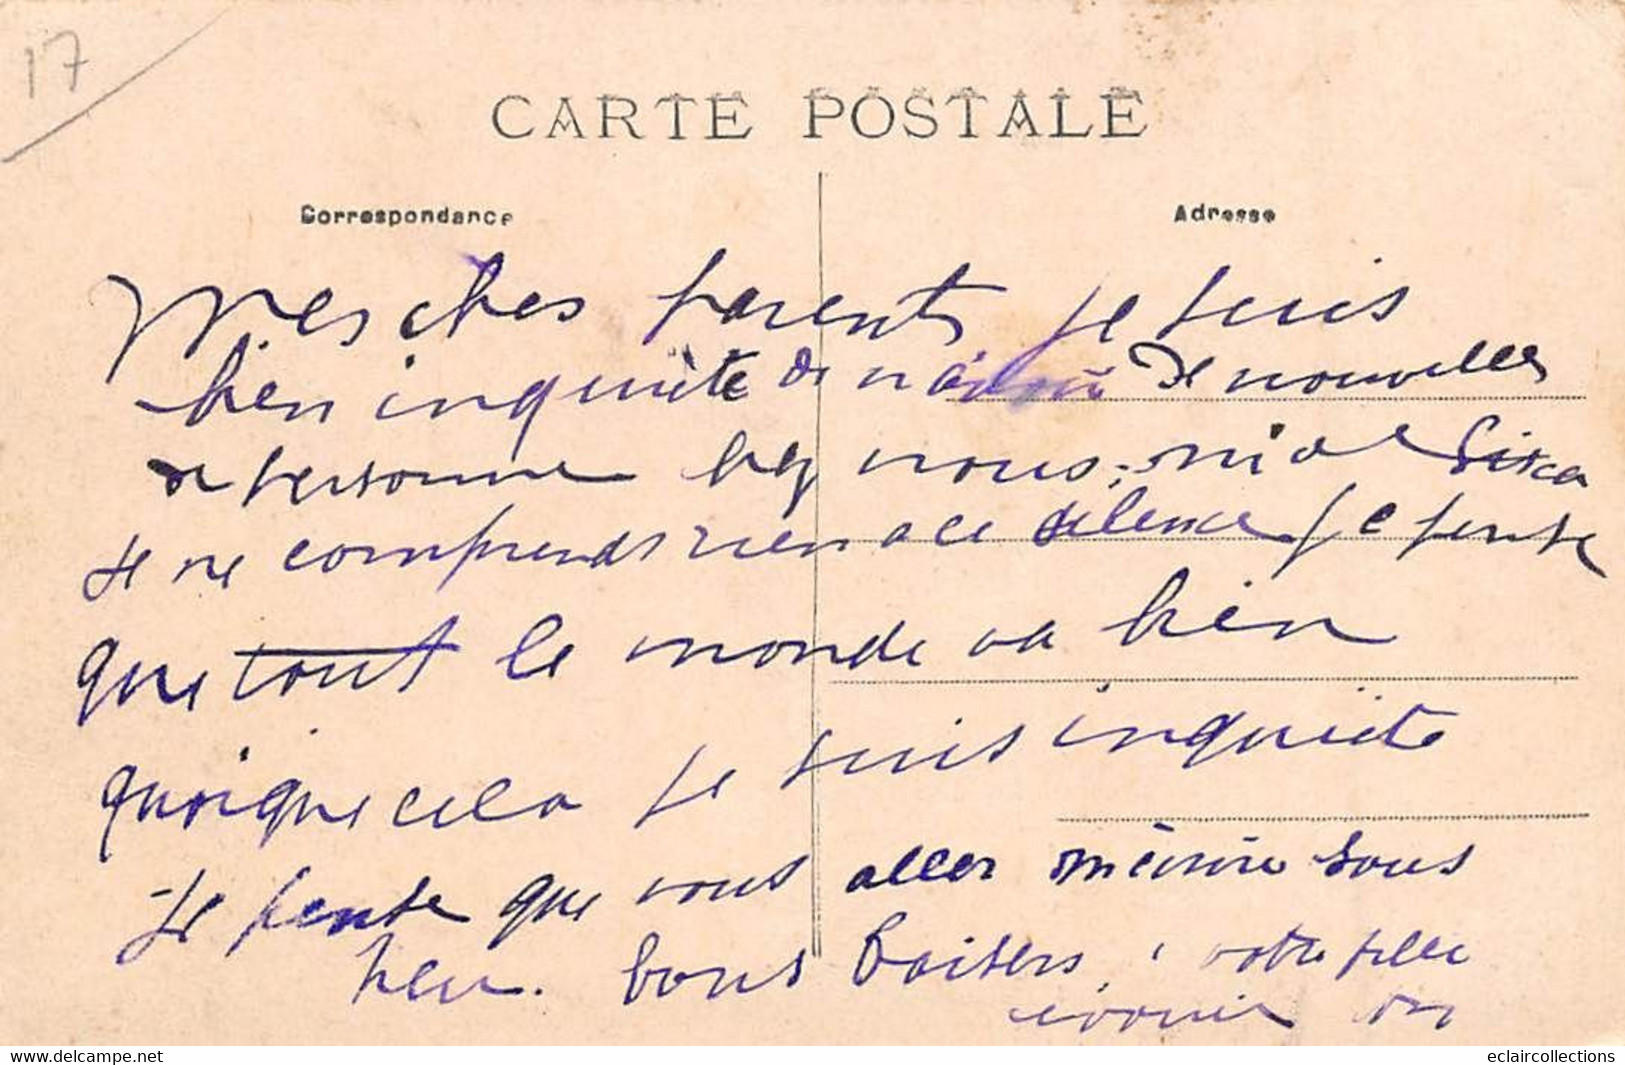 17
CARTE POSTALE
Correspondance
Adresse
Mes chers parents je suis
bien inquiète de n'avoir de nouvelles
de personne nous, ni de
Je ne comprends rien a ce silence je pense
que tout le monde va bien
quoique cela je suis inquiète
Je pense que vous aller m'écrire sous
peu. bons baisers, votre fille
www.delcampe.net
eclaircollections